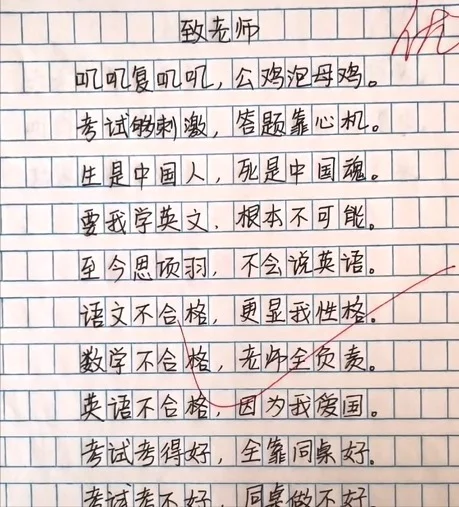 致老师
优
叽叽复叽叽，公鸡泡母鸡。
考试够刺激，答题靠心机。
生是中国人，死是中国魂。
要我学英文，根本不可能。
至今思项羽，不会说英语。
语文不合格，更显我性格。
数学不合格，老师全负责。
英语不合格，因为我爱国。
考试考得好，全靠同桌好。
考试考不好，同桌做不好。